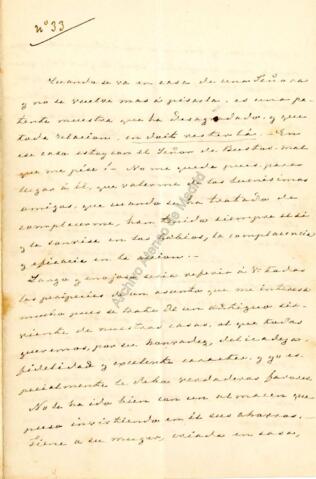 nº 33
Cuando se va en casa de una Señora
y no se vuelve mas á pisarla, es una pa-
tente muestra que ha desagradado, y que
toda relacion, en doit rester là. En
ese caso estoy con el Señor de Bustos, mal
que me pese! No me queda pues, para
llegar á él, que valerme de los buenísimos
amigos, que cuando se ha tratado de
complacerme, han tenido siempre el sí
y la sonrisa en los labios, la complacencia
y eficacia en la accion.
Largo y enojoso seria referir á V. todas
las peripecias de un asunto que me interesa
mucho pues se trata de un antiguo sir-
viente de nuestras casas, al que todos
queremos, por su honradez, delicadeza,
fidelidad y excelente caracter, y yo es-
pecialmente le debo verdaderos favores.
No le ha ido bien con un almacen que
puso invirtiendo en él sus ahorros.
Tiene a su muger, criada en casa,
Archivo Ateneo de Madrid